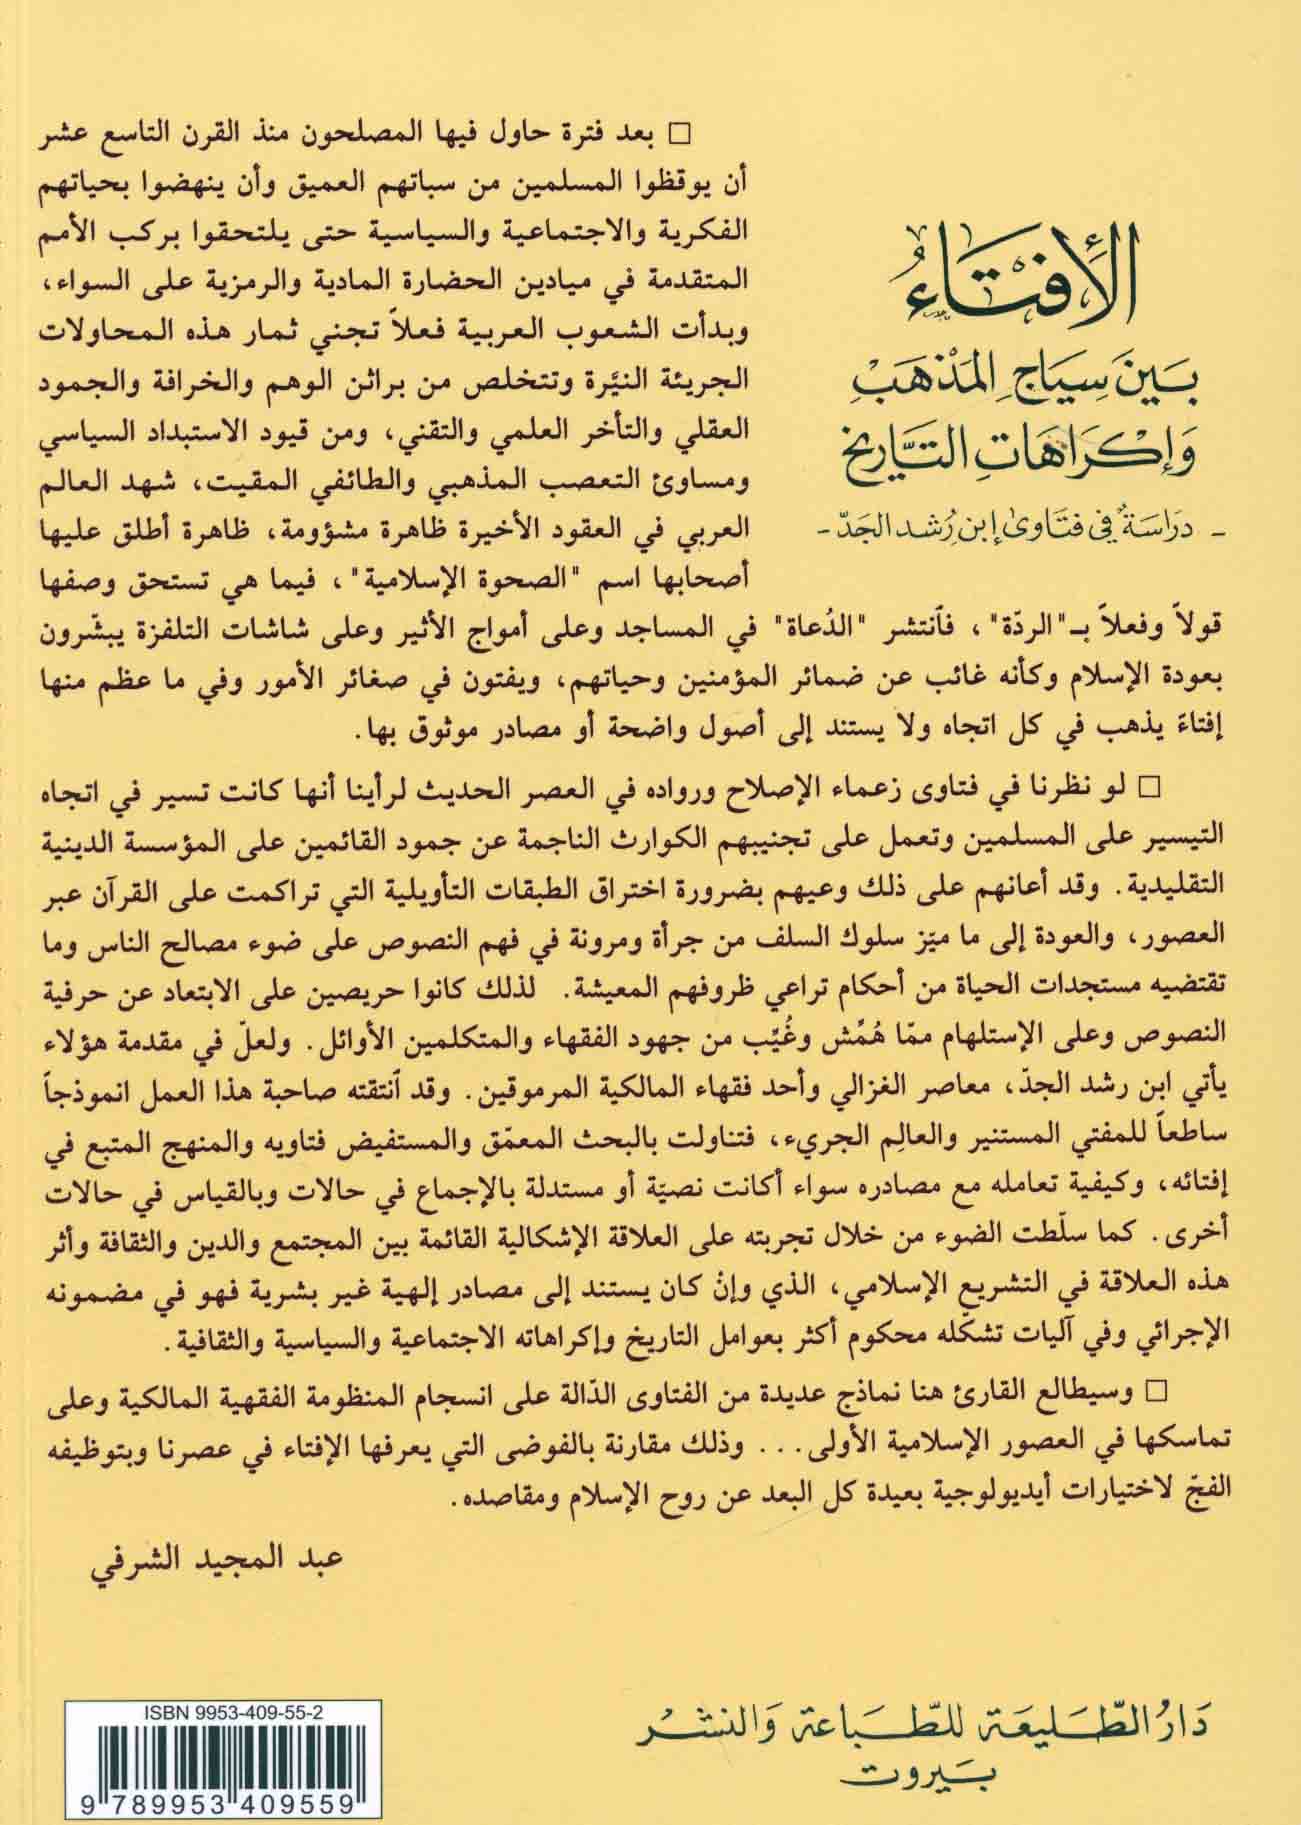 الإفتاء
بَينَ سِيَاجِ المَذْهَبْ
وَإكْرَاهَاتِ التَّاريخْ
- دراسَةٌ في فتَاوىٰ إبن رُشد الجَدّ -
□ بعد فترة حاول فيها المصلحون منذ القرن التاسع عشر
أن يوقظوا المسلمين من سباتهم العميق وأن ينهضوا بحياتهم
الفكرية والاجتماعية والسياسية حتى يلتحقوا بركب الأمم
المتقدمة في ميادين الحضارة المادية والرمزية على السواء،
وبدأت الشعوب العربية فعلاً تجني ثمار هذه المحاولات
الجريئة النيَّرة وتتخلص من براثن الوهم والخرافة والجمود
العقلي والتأخر العلمي والتقني، ومن قيود الاستبداد السياسي
ومساوئ التعصب المذهبي والطائفي المقيت، شهد العالم
العربي في العقود الأخيرة ظاهرة مشؤومة، ظاهرة أطلق عليها
أصحابها اسم "الصحوة الإسلامية"، فيما هي تستحق وصفها
قولاً وفعلاً بـ"الردّة"، فٱنتشر "الدُعاة" في المساجد وعلى أمواج الأثير وعلى شاشات التلفزة يبشّرون
بعودة الإسلام وكأنه غائب عن ضمائر المؤمنين وحياتهم، ويفتون في صغائر الأمور وفي ما عظم منها
إفتاءَ يذهب في كل اتجاه ولا يستند إلى أصول واضحة أو مصادر موثوق بها.
□ لو نظرنا في فتاوى زعماء الإصلاح ورواده في العصر الحديث لرأينا أنها كانت تسير في اتجاه
التيسير على المسلمين وتعمل على تجنيبهم الكوارث الناجمة عن جمود القائمين على المؤسسة الدينية
التقليدية. وقد أعانهم على ذلك وعيهم بضرورة اختراق الطبقات التأويلية التي تراكمت على القرآن عبر
العصور، والعودة إلى ما ميّز سلوك السلف من جرأة ومرونة في فهم النصوص على ضوء مصالح الناس وما
تقتضيه مستجدات الحياة من أحكام تراعي ظروفهم المعيشة. لذلك كانوا حريصين على الابتعاد عن حرفية
النصوص وعلى الإستلهام ممّا هُمِّش وغُيِّب من جهود الفقهاء والمتكلمين الأوائل. ولعلّ في مقدمة هؤلاء
يأتي ابن رشد الجدّ، معاصر الغزالي وأحد فقهاء المالكية المرموقين. وقد ٱنتقته صاحبة هذا العمل انموذجاً
ساطعاً للمفتي المستنير والعالِم الجريء، فتناولت بالبحث المعمّق والمستفيض فتاويه والمنهج المتبع في
إفتائه، وكيفية تعامله مع مصادره سواء أكانت نصيّة أو مستدلة بالإجماع في حالات وبالقياس في حالات
أخرى. كما سلّطت الضوء من خلال تجربته على العلاقة الإشكالية القائمة بين المجتمع والدين والثقافة وأثر
هذه العلاقة في التشريع الإسلامي، الذي وإنْ كان يستند إلى مصادر إلهية غير بشرية فهو في مضمونه
الإجرائي وفي آليات تشكّله محكوم أكثر بعوامل التاريخ وإكراهاته الاجتماعية والسياسية والثقافية.
□ وسيطالع القارئ هنا نماذج عديدة من الفتاوى الدّالة على انسجام المنظومة الفقهية المالكية وعلى
تماسكها في العصور الإسلامية الأولى... وذلك مقارنة بالفوضى التي يعرفها الإفتاء في عصرنا وبتوظيفه
الفجّ لاختيارات أيديولوجية بعيدة كل البعد عن روح الإسلام ومقاصده.
عبد المجيد الشرفي
دَارُ الطَّليعَة للطّبَاعة وَالنشْر
بَيروت
ISBN 9953-409-55-2
9 789953 409559